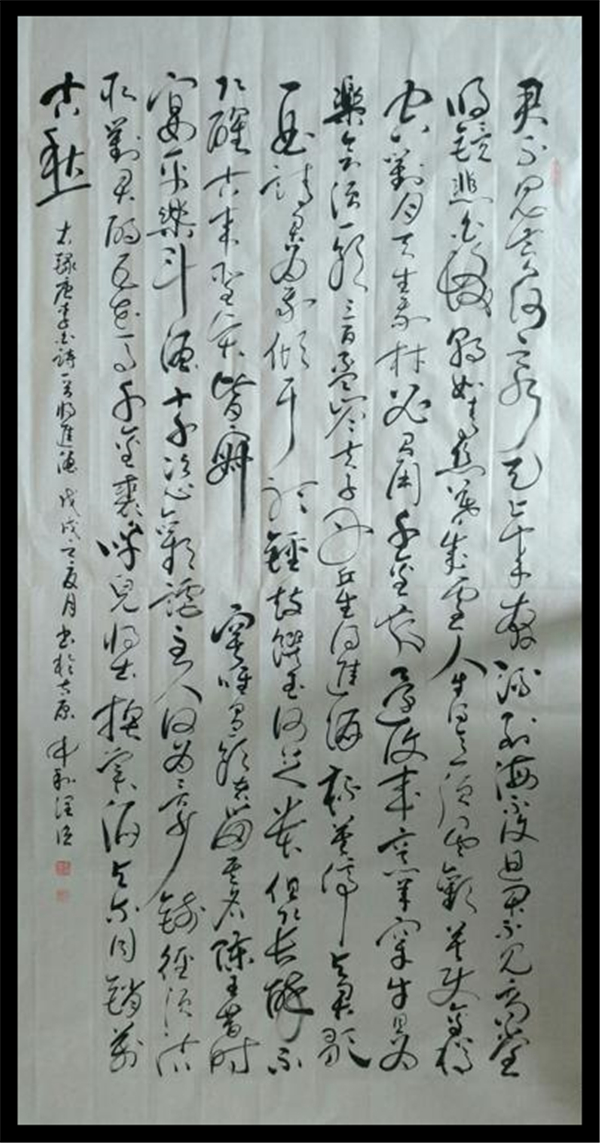 君不見黃河之水天上來奔流到海不復迴君不見高堂
明鏡悲白髮朝如青絲暮成雪人生得意須盡歡莫使金樽
空對月天生我材必有用千金散盡還復來烹羊宰牛且為
樂會須一飲三百杯岑夫子丹丘生將進酒杯莫停與君歌
一曲請君為我傾耳聽鐘鼓饌玉何足貴但願長醉不
願醒古來聖賢皆寂寞惟有飲者留其名陳王昔時
宴平樂斗酒十千恣歡謔主人何為言少錢徑須沽
取對君酌五花馬千金裘呼兒將出換美酒與爾同銷萬
古愁
右錄唐李白詩一首將進酒 戊戌夏月書於太原